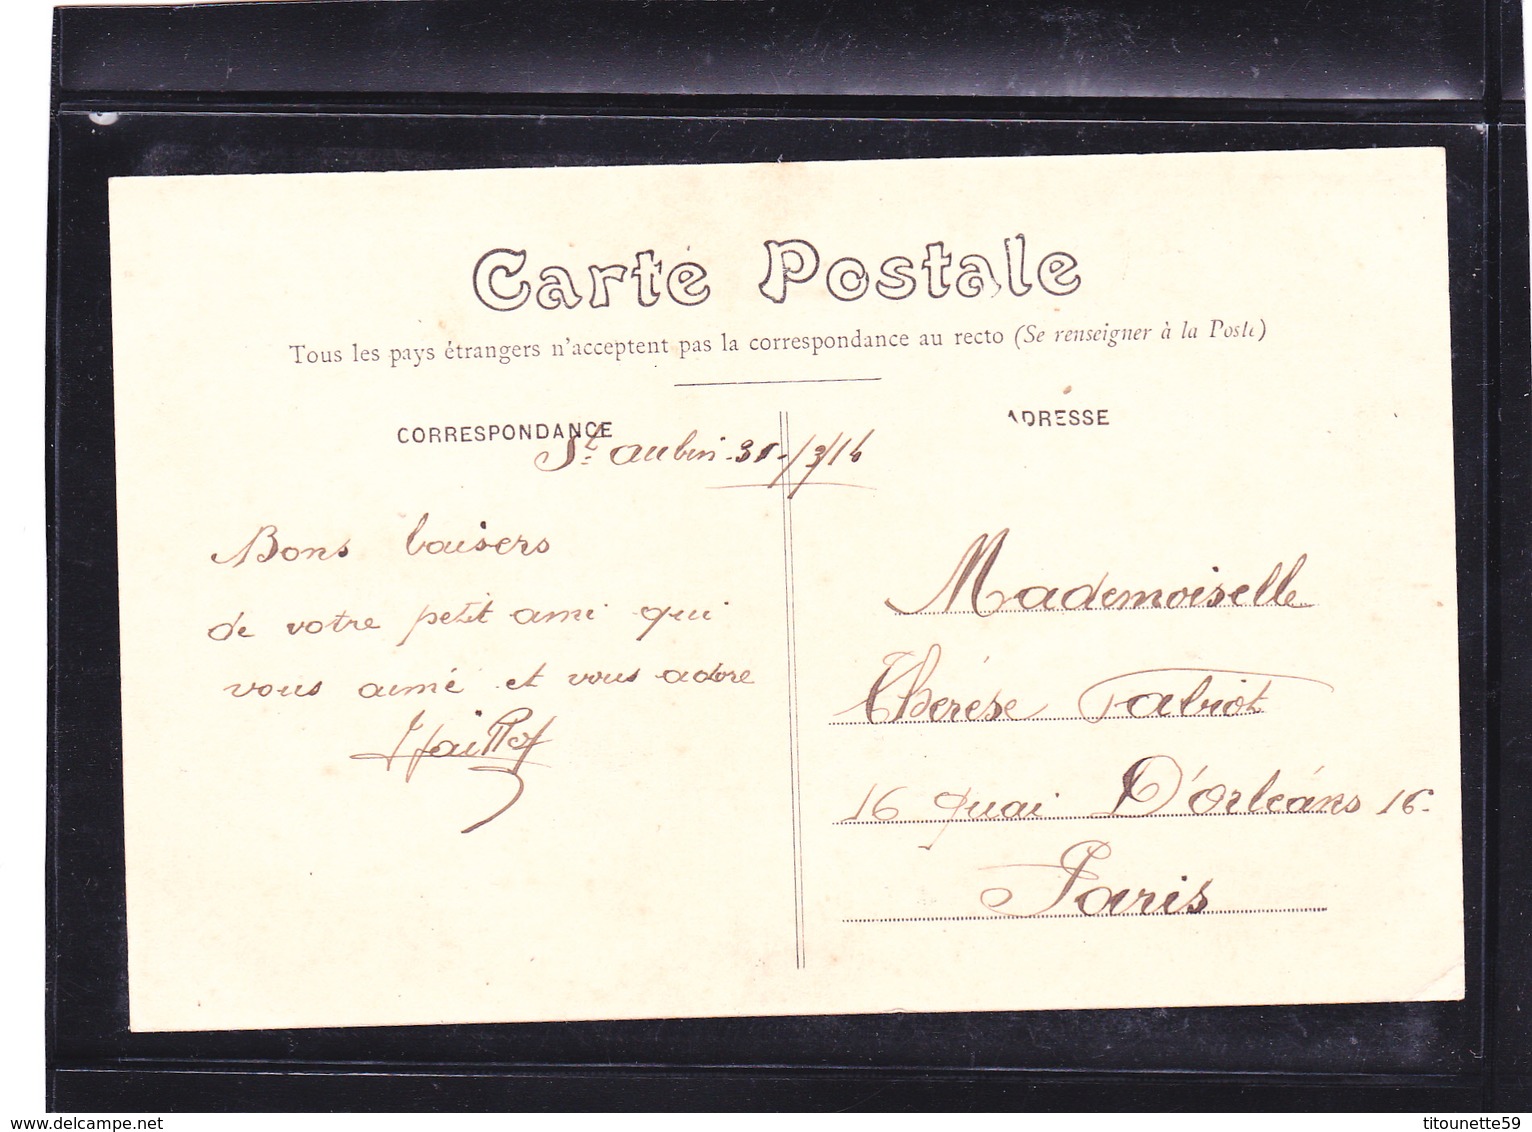 Carte Postale
Tous les pays étrangers n'acceptent pas la correspondance au recto (Se renseigner à la Poste)
CORRESPONDANCE
ADRESSE
St. aubin - 31 - /3/14
Bons baisers
de votre petit ami qui
vous aimé et vous adore
Mademoiselle
Thérése Fabriot
16 Quai D'Orléans 16
Paris
www.delcampe.net
titounette59